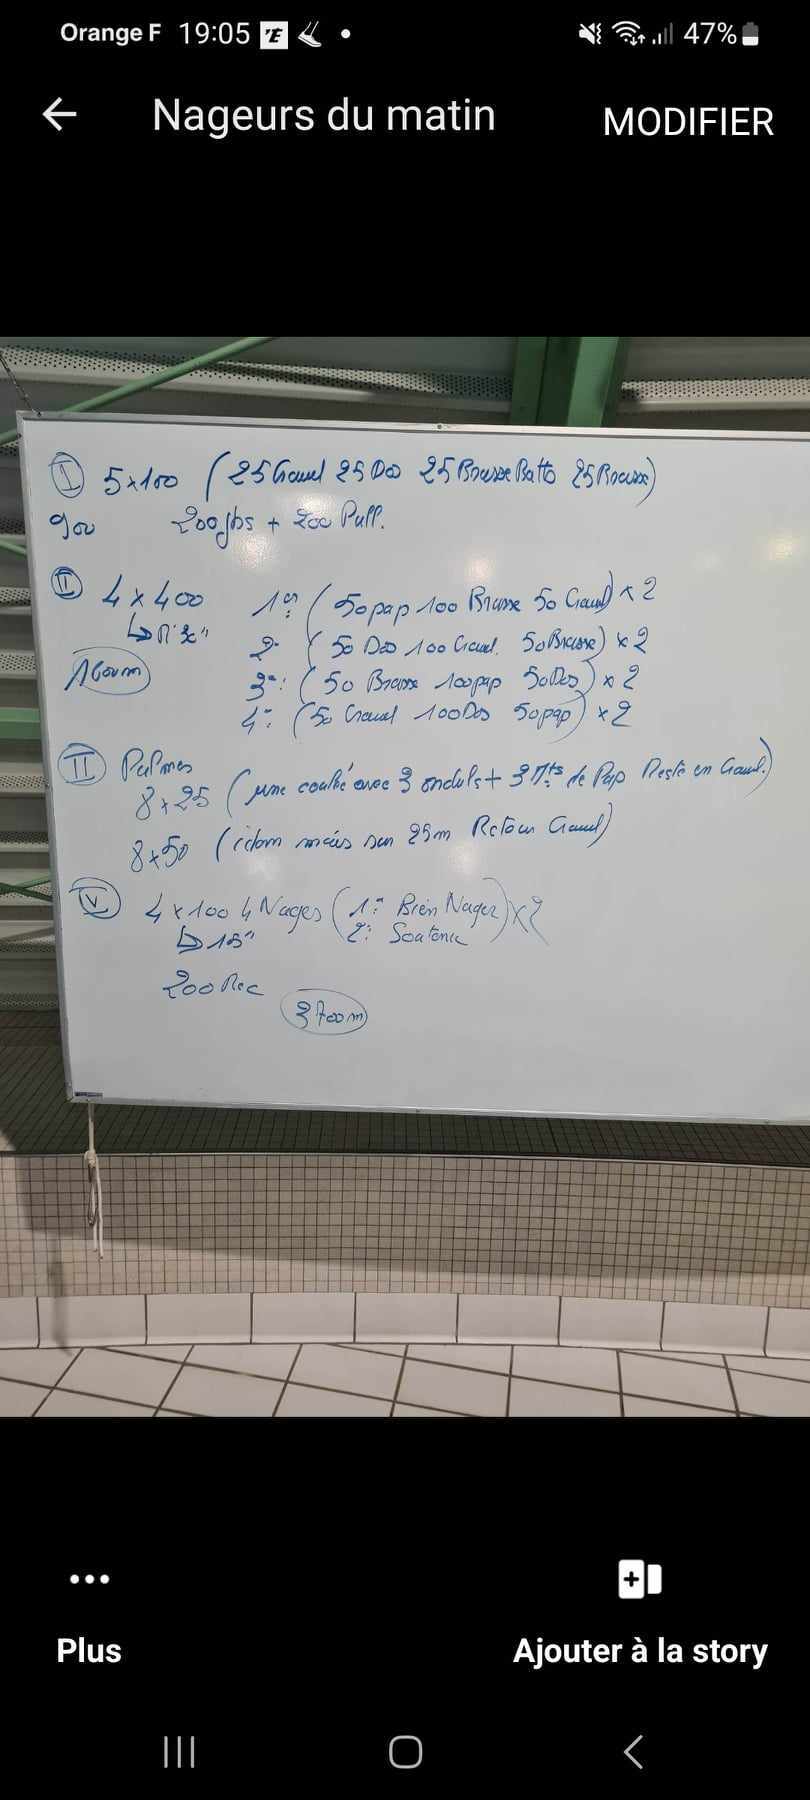 Orange F 19:05 47%
Nageurs du matin MODIFIER
I 5x100 (25 Crawl 25 Dos 25 Brasse Batto 25 Brasse)
900 200 gbs + 200 Pull.
II 4 x 400 1er: (50 pap 100 Brasse 50 Crawl) x 2
↳ R: 30" 2e (50 Dos 100 Crawl. 50 Brasse) x 2
1600m 3e: (50 Brasse 100 pap 50 Dos) x 2
4e: (50 Crawl 100 Dos 50 pap) x 2
III Palmes
8 x 25 (une coulée avec 3 onduls + 3 Mts de Pap Reste en Crawl.)
8 x 50 (idem mais sur 25m Retour Crawl)
IV 4 x 100 4 Nages (1e: Bien Nager) x 2
↳ 15" 2e: Soutenu
200 Rec
3700m
Plus
Ajouter à la story